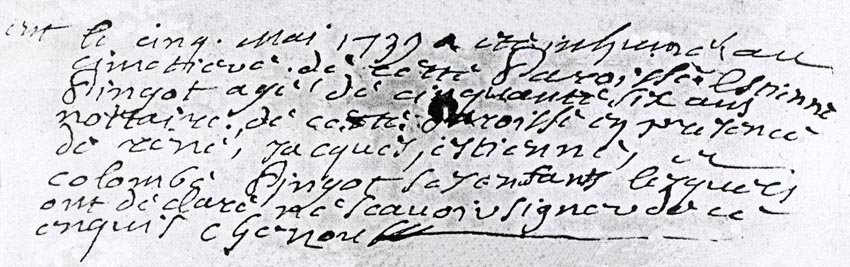 le cinq. Mai 1739 a été inhumé au
cimetiere. de cette Paroisse Estienne
Pingot agé de cinquante six ans
nottaire de cette Paroisse en presence
de rené, jacques, estienne, et
colombe Pingot ses enfants lesquels
ont declaré ne scavoir signer de ce
enquis